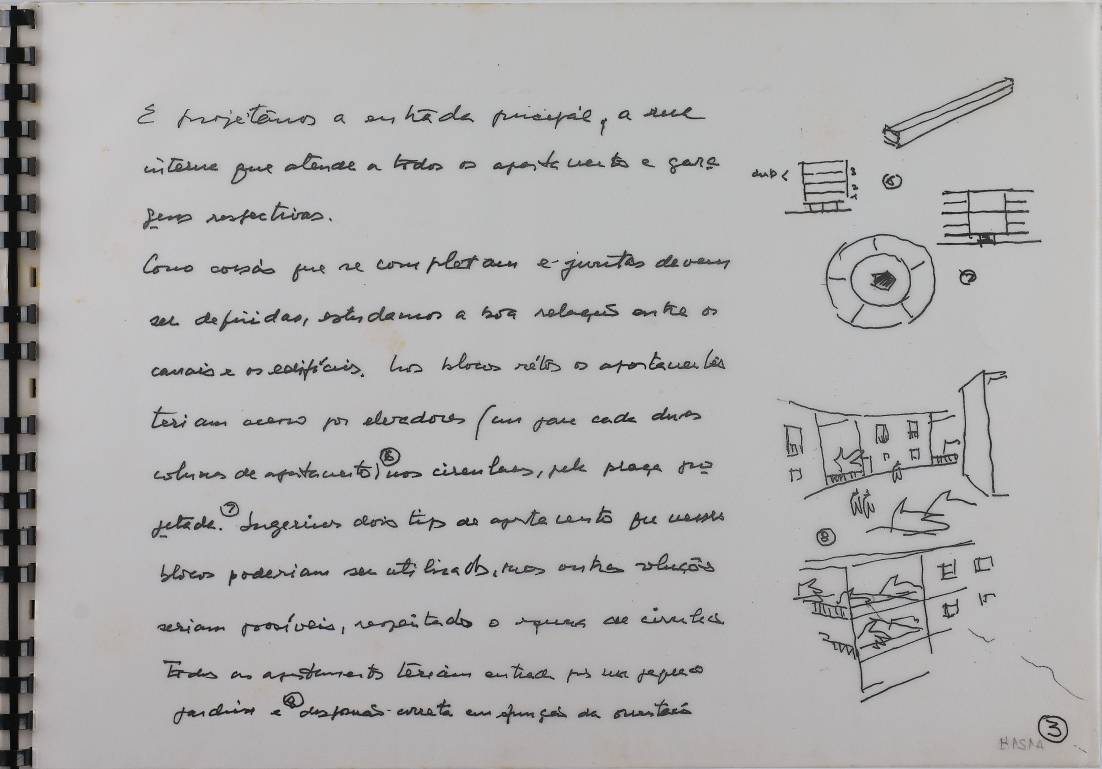 E projetamos a entrada principal, a rua
interna que atende a todos os apartamentos e gara
gens respectivas.
Como coisas que se completam e juntas devem
ser definidas, estudamos a boa relação entre os
canais e os edifícios. Nos blocos rétos os apartamentos
teriam acesso por elevadores (um para cada duas
colunas de apartamento) 6 nos circulares, pela praça pro
jetada. 7 Sugerimos dois tipos de apartamento que nesses
blocos poderiam ser utilizados, mas outras soluções
seriam possíveis, respeitado o esquema de circulação
Todos os apartamentos teriam entrada por um pequeno
jardim e 8 disposição correta em função da orientação
dup <
3
2
1
6
7
8
3